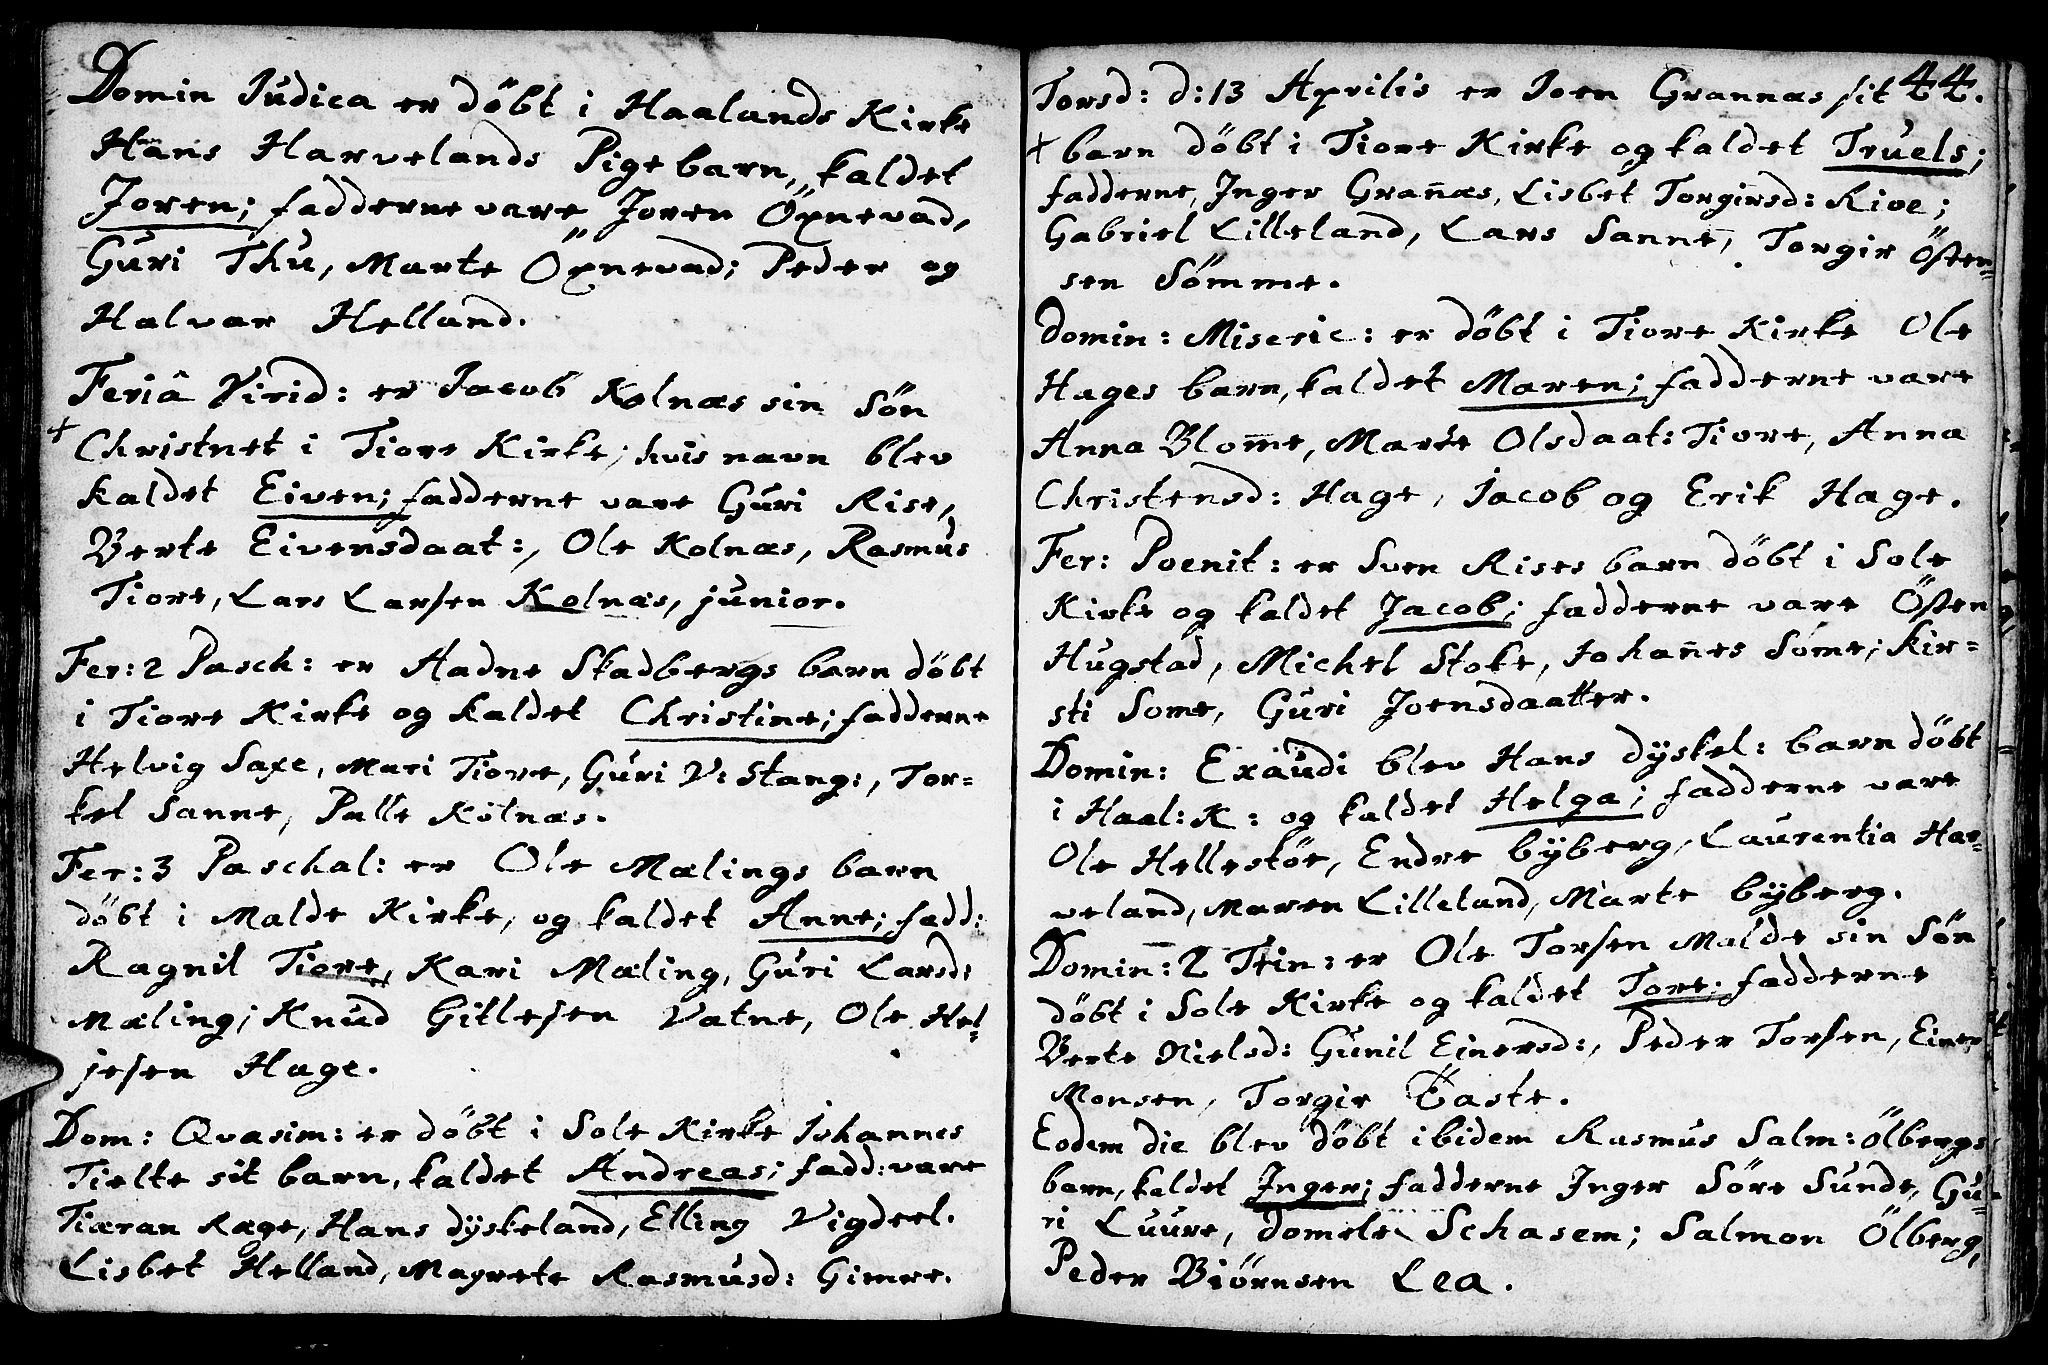 Domin Judica er döbt i Haalands Kirke
Hans Harvelands Pigebarn, kaldet
Joren; fadderne vare Joren Öxnevad,
Guri Thu, Marte Öxnevad; Peder og
Halvar Helland.
Feriâ Virid: er Jacob Kolnæs sin Sön
+ Christnet i Tiore Kirke, hvis navn blev
kaldet Eiven; fadderne vare Guri Rise,
Berte Eivensdaat:, Ole Kolnæs, Rasmus
Tiore, Lars Larsen Kolnæs, junior.
Fer: 2 Pasch: er Aadne Skadbergs barn döbt
i Tiore Kirke og kaldet Christine; fadderne
Helvig Saxe, Mari Tiore, Guri V: Stang:, Tor=
kel Sanne, Palle Kolnæs.
Fer: 3 Paschal: er Ole Mælings barn
döbt i Malde Kirke, og kaldet Anne; fadd:
Ragnil Tiore, Kari Mæling, Guri Larsd:
Mæling; Knud Gitlesen Vatne, Ole Hel=
jesen Hage.
Dom: Qvasim: er döbt i Sole Kirke Johannes
Tielte sit barn, kaldet Andreas; fadd: vare
Tiæran Ræge, Hans dÿskeland, Elling Vigdeel.
Lisbet Helland, Magrete Rasmusd: Gimre.
Torsd: d: 13 Aprilis er Joen Grannæs sit 44.
+ barn döbt i Tiore Kirke og kaldet Truels;
fadderne, Inger Gran̄æs, Lisbet Torgirsd: Rive;
Gabriel Lilleland, Lars Sanne, Torgir Östen=
sen Sömme.
Domin: Miseric: er döbt i Tiore Kirke Ole
Hages barn, kaldet Maren; fadderne vare
Anna Blom̄e, Marte Olsdaat: Tiore, Anna
Christensd: Hage, Jacob og Erik Hage.
Fer: Poenit: er Sven Rises barn döbt i Sole
Kirke og kaldet Jacob; fadderne vare Östen
Hugstad, Michel Stoke, Johan̄es Söme; Kir=
sti Some, Guri Joensdaatter.
Domin: Exaudi blev Hans dÿskel: barn döbt
i Haal: K: og kaldet Helga; fadderne vare
Ole Hellestöe, Endre bÿberg, Laurentia Har=
veland, Maren Lilleland, Marte bÿberg.
Domin: 2 Trin: er Ole Torsen Malde sin Sön
döbt i Sole Kirke og kaldet Tore; fadderne
Berte Nielsd: Gunil Einersd:, Peder Torsen, Einer
Monsen, Torgir Taste.
Eodem die blev döbt ibidem Rasmus Salm: Ölbergs
barn, kaldet Inger; fadderne Inger Söre Sunde, Gu=
ri Luure, domele Schasem; Salmon Ölberg,
Peder Biörnsen Lea.